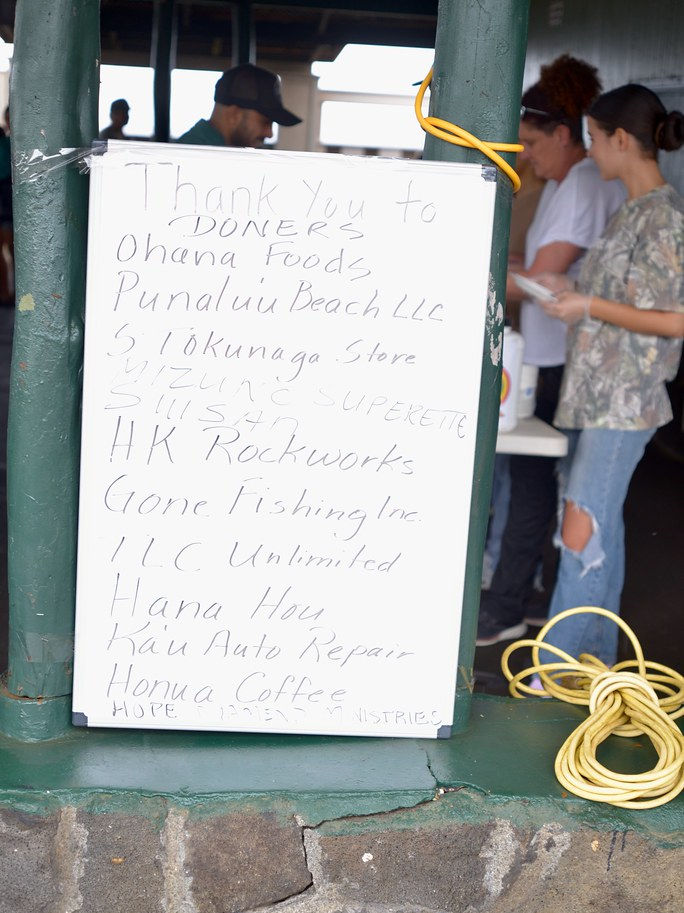 Thank You to
DONERS
Ohana Foods
Punalu'u Beach LLC
S Tokunaga Store
MIZUNO SUPERETTE
HK Rockworks
Gone Fishing Inc.
ILC Unlimited
Hana Hou
Ka'u Auto Repair
Honua Coffee
HOPE